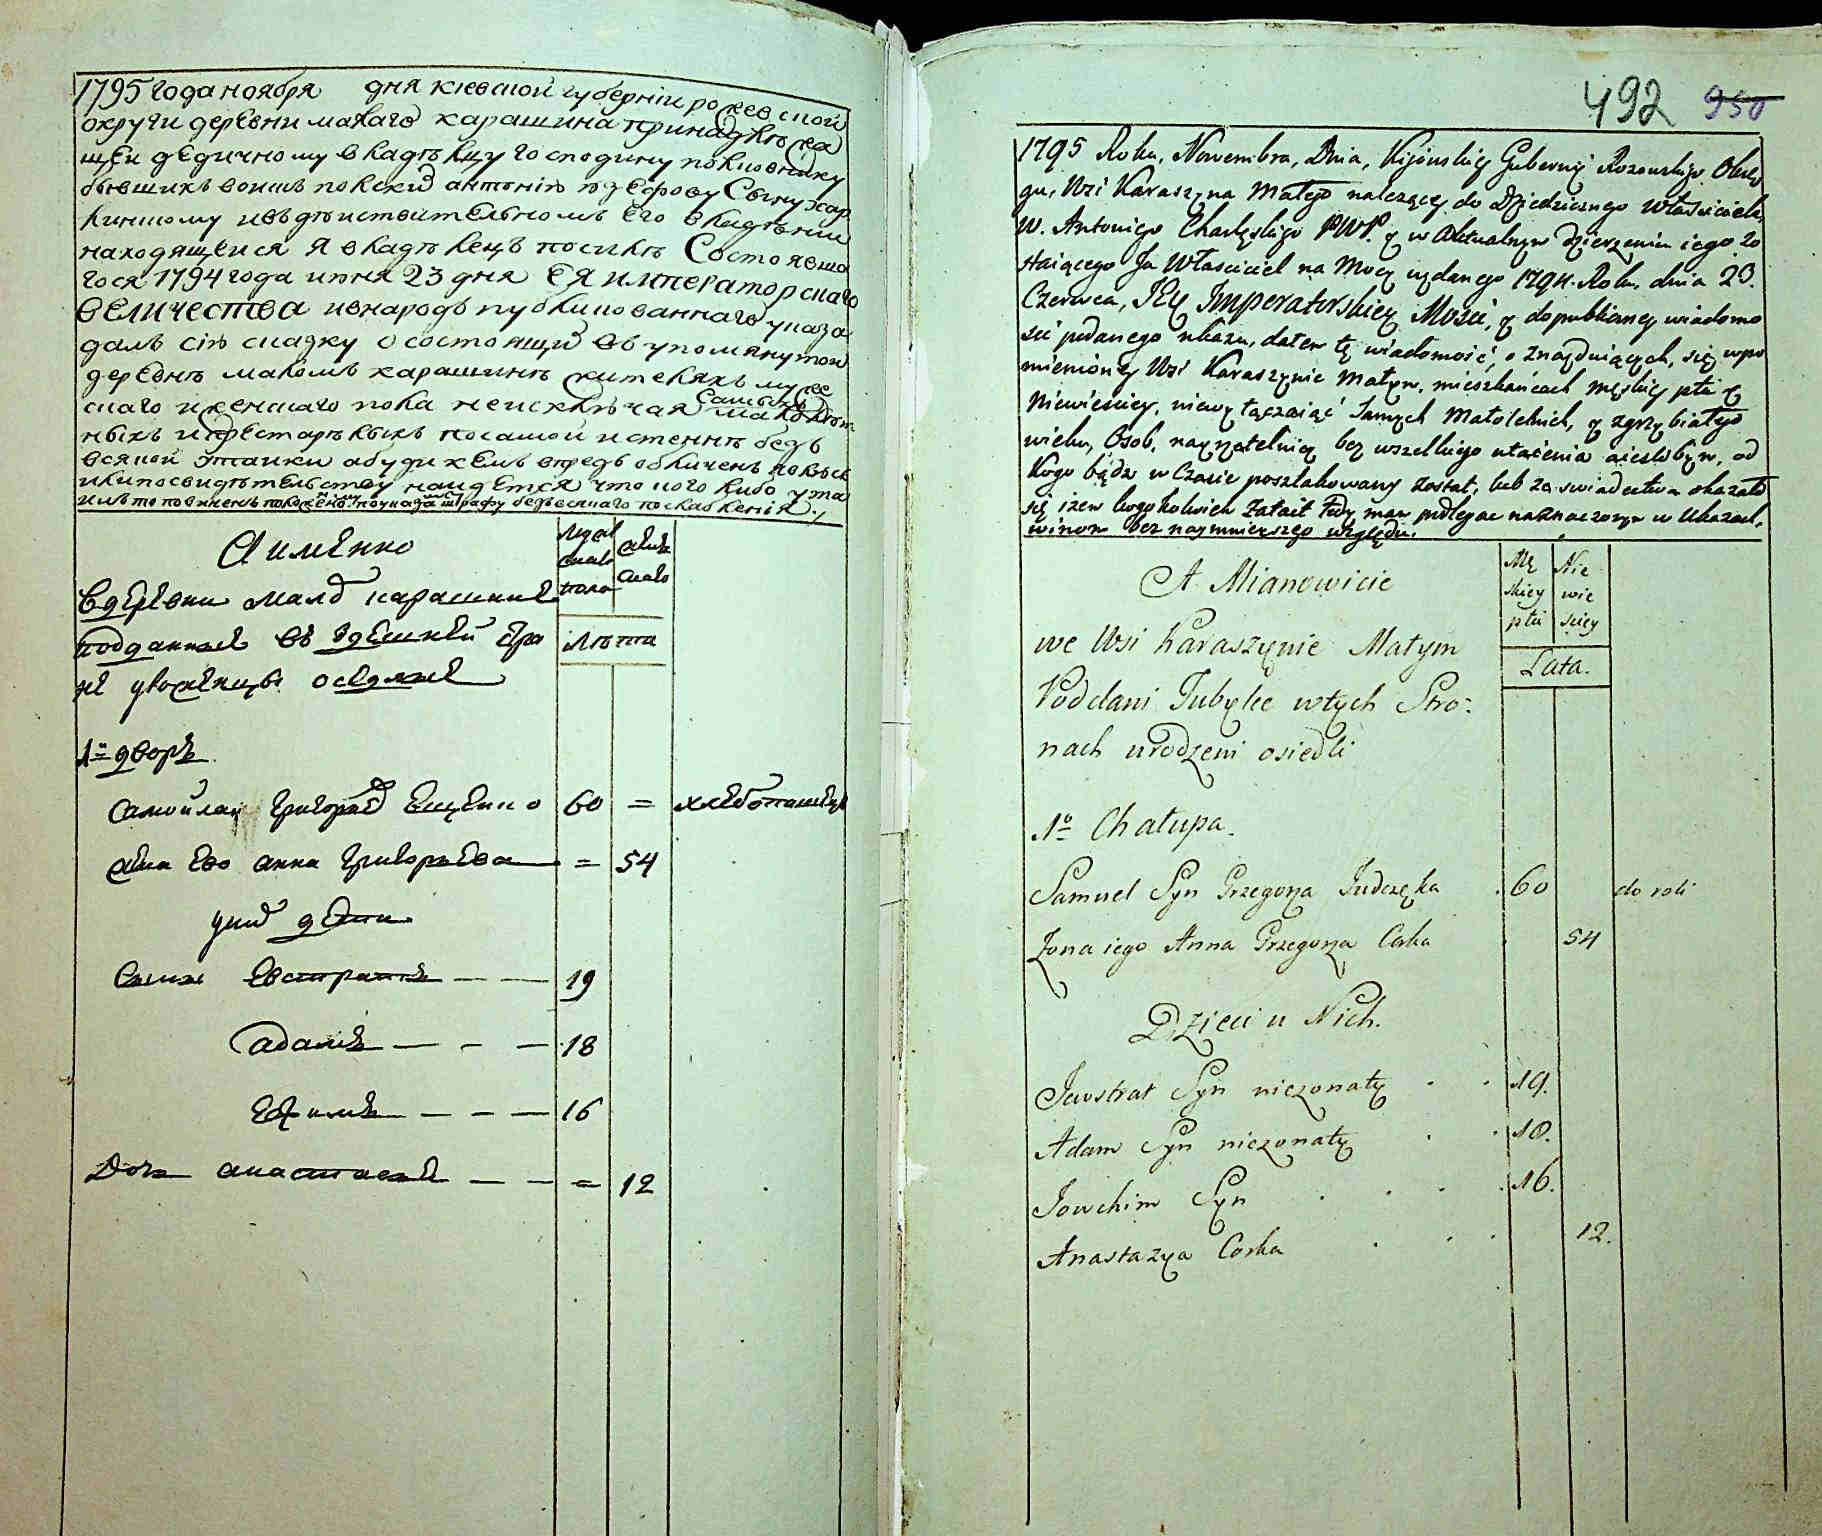 1795 года ноября дня киевской губернии рожевской
округи деревни малаго карашина принадлежа
щеи дедичному владѣлцу господину полковнику
бывшихъ воискъ полскихъ антонию иозефову Сыну хар
линшому ивъ дѣиствителномъ его владѣнии
находящеися я владѣлецъ посилѣ Состоявша
гося 1794 года июня 23 дня ЕЯ императорскаго
величества ивнародъ публикованнаго указа
далъ сию сказку о состоящихъ въ упомянутои
деревнѣ маломъ карашинѣ жителяхъ муже
скаго и женскаго пола неисключая Самыхъ малолѣт
ныхъ и престарѣлыхъ посамои истеннѣ безъ
всякой утаики абуди кемъ впредь обличенъ явлюсь
илипосвидѣтельству наидется что кого либо ута
илъ то повиненъ положенному поуказамъ штрафу безъ всякаго послабления
А именно
Мужеска пола
женска
Лѣта
Вдеревни малом карашине
подданные въ здешней стра
не уроженцы оседлые
1й дворъ
Самойла Григориев Ещенко 60 = хлебопашецъ
жена Ево анна Григорьева = 54
уних дети
Сынъ Евстратъ — — 19
адамъ — - — 18
Ефимъ — — — 16
Дочь анастасия — - = 12
492 950
1795 Roku, Nowembra, Dnia, Kijowskiey Gubernij Rozowskiego Okrę
gu, Wsi Karaszyna Małego należącey do Dziedzicznego Właściciela
W. Antoniego Charlęskiego PWP. y w Aktualnym dzierzeniu iego zo
staiącego Ja Właściciel na Mocy wydanego 1794. Roku. dnia 23.
Czerwca, JEy Imperatorskiey Mości, y do publiczney wiadomo
ści podanego ukazu, dałem tę wiadomość, o znayduiących, się wpo
mienioney Wsi Karaszynie Małym, mieszkańcach męskiey płci y
Niewiesciey, niewyłączaiąc Samych Małoletnich, y zgrzybiałego
wieku, Osob, nayrzetelniey bez wszelkiego utaienia aiesliбym, od
kogo bądz w Czasie poszlakowany został, lub za świadectwem okazało
się izem kogokolwiek Zataił Tedy mam podlegac naznaczonym w Ukazach,
winom bez naymnieyszego względu.
A Mianowicie
Mę
skiey
płci
Nie
wie
sciey
Lata.
we Wsi Karaszynie Małym
Poddani Tubylce wtych Stro-
nach urodzeni osiedli
1o Chałupa.
Samuel Syn Grzegorza Judczęka . 60 do roli
Zona iego Anna Grzegorza Corka . 54
Dzieci u Nich.
Jewstrat Syn niezonaty . . 19.
Adam Syn niezonaty . . 18.
Jowchim Syn . . . . 16.
Anastazya Corka . . . 12.